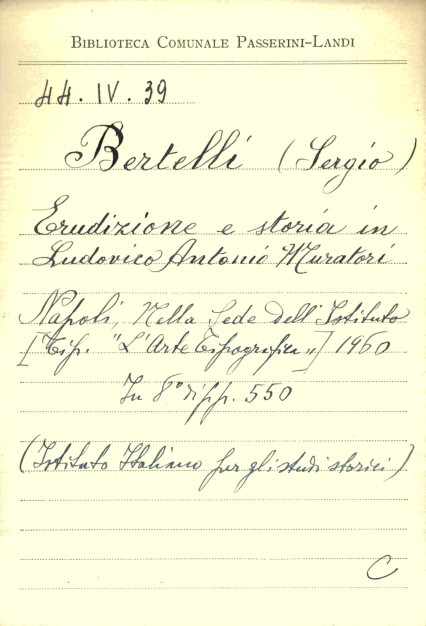 BIBLIOTECA COMUNALE PASSERINI-LANDI
44. IV. 39
Bertelli (Sergio)
Erudizione e storia in
Ludovico Antonio Muratori
Napoli, Nella Sede dell'Istituto
[Tip. "L'Arte Tipografica„] 1960
In 8° di pp. 550
(Istituto Italiano per gli studi storici)
C